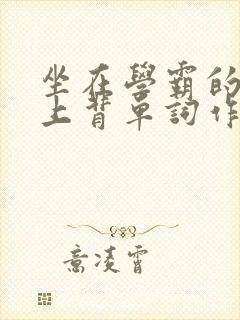 坐在學霸的
上背單詞作
意凌霄